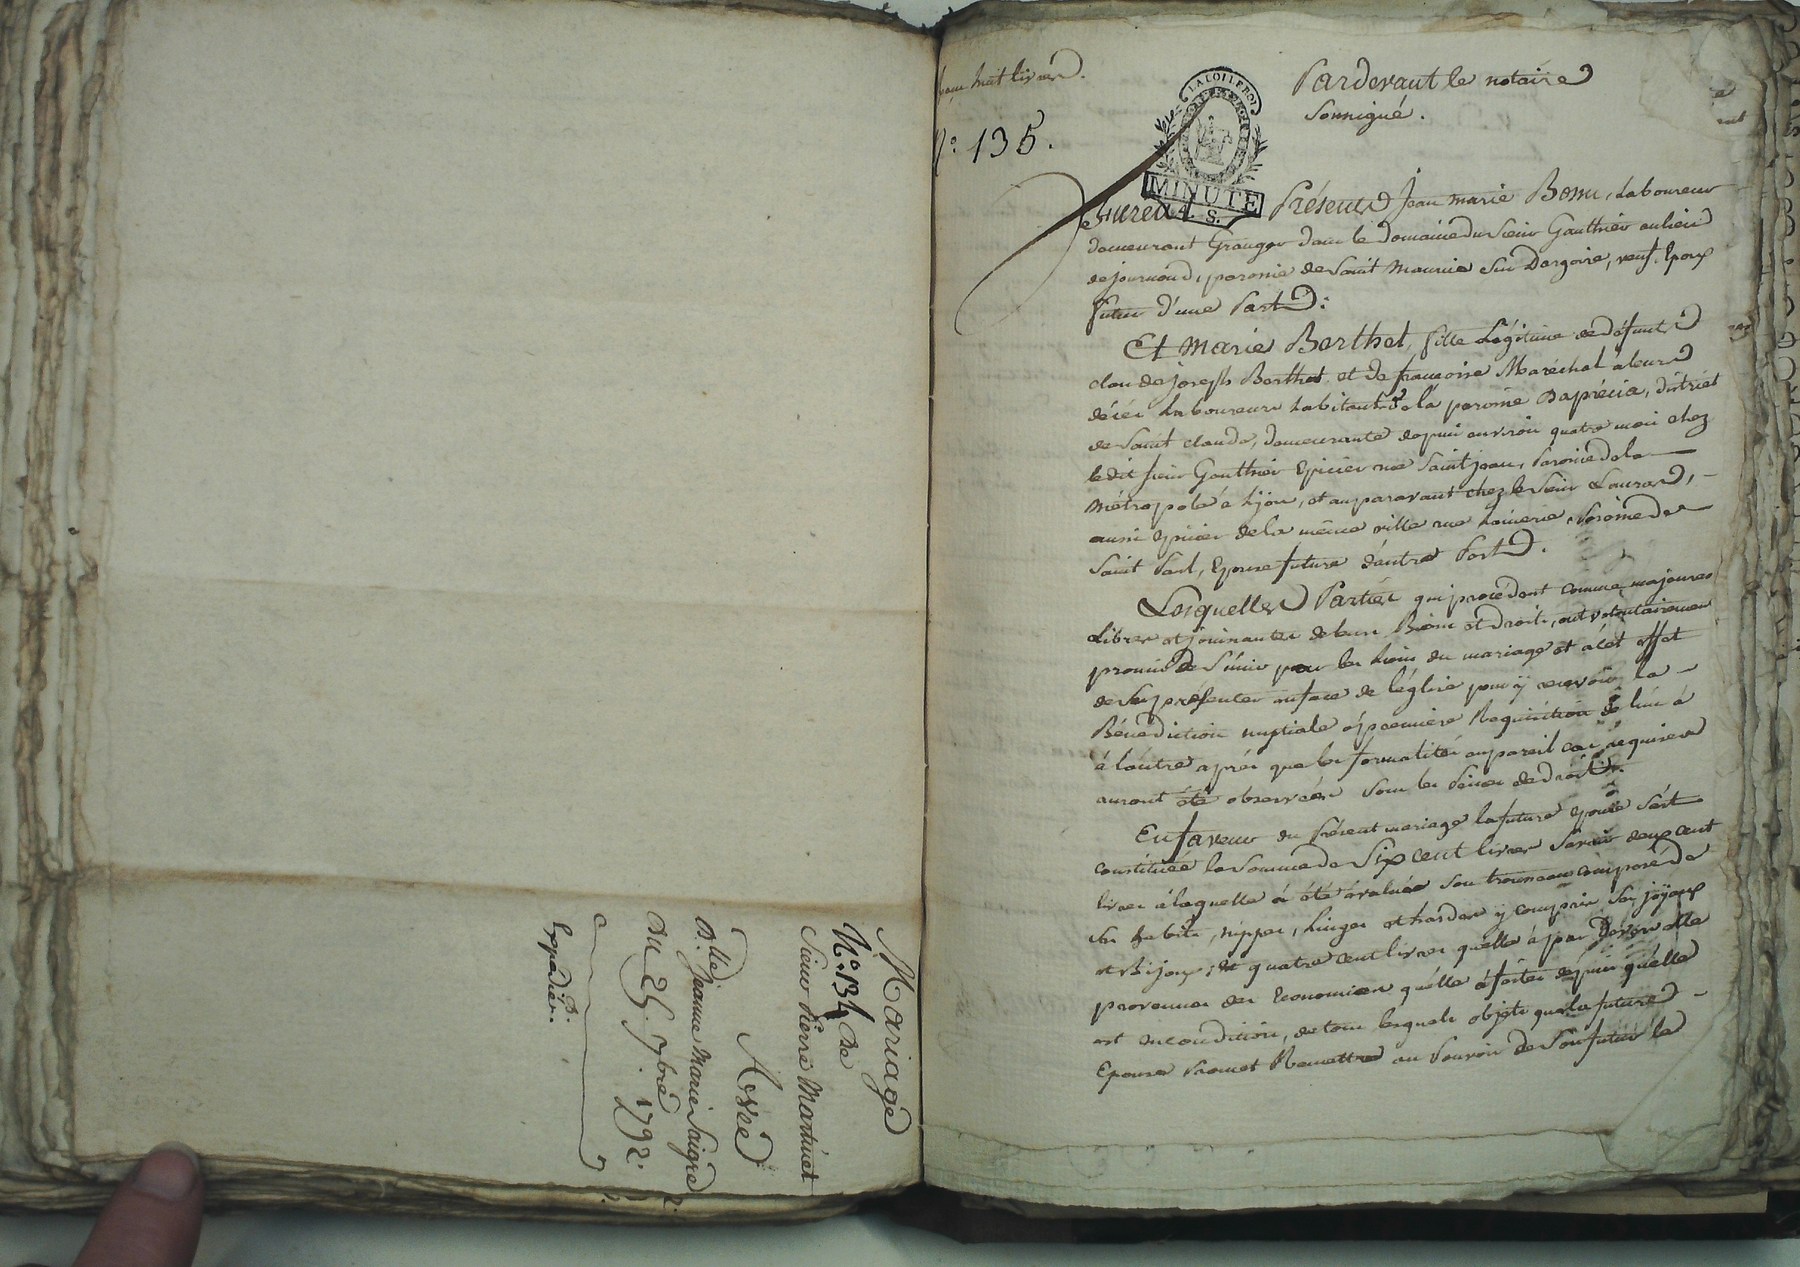 Mariage
N.° 134 de
Sieur Pierre Martinet
Avec
D.lle Jeanne Marie Saigne
Du 25. 7bre 1792.
Expédiée.
huit livres.
N.° 135.
LA LOI LE ROI
MINUTE
4 S.
Pardevant le notaire
Soussigné.
Furent Présents Jean marie Bonu, Laboureur
demeurant Granger dans le Domaine du Sieur Gauthier au lieu
de journoud, paroisse de Saint Maurice Sur Dargoire, veuf. Epoux
futur d'une Part:
Et Marie Berthet, fille Légitime de défunts
claude joseph Berthet et de francoise Maréchal à leurs
décès Laboureurs habitants de la paroisse Daprécia, district
de Saint claude, demeurante depuis environ quatre mois chez
ledit sieur Gauthier Epicier rue Saint jean, Paroisse de la
Métropole à Lyon, et auparavant chez le Sieur Laurend,
aussi Epicier de la même ville rue Lainerie, Paroisse de
Saint Paul, Epouse future d'autre Part.
Lesquelles Parties qui procédent comme majeures
Libres et jouissantes de leurs Biens et droits, ont volontairement
promis de S'unir par les Liens du mariage et à cet effet
de se présenter en face de l'église pour ÿ recevoir la
Bénédiction nuptiale à premiere Requisition de l'un à
à l'autre après que les formalités en pareil cas requises
auront été observées Sous les Peines de droit.
En faveur du Présent mariage la future épouse S'est
constituée la Somme de Six cent livres Savoir deux cent
livres à laquelle à été évaluée Son trousseau composé de
Ses habits, nippes, Linges et hardes ÿ compris Ses joÿaux
et Bijoux; et quatre cent livres quelle à par devers elle
provenues des Economies qu'elle à faites depuis qu'elle
est en condition, de tous lesquels objets que la future
Epouse Promet Remettre au Pouvoir de Son futur le